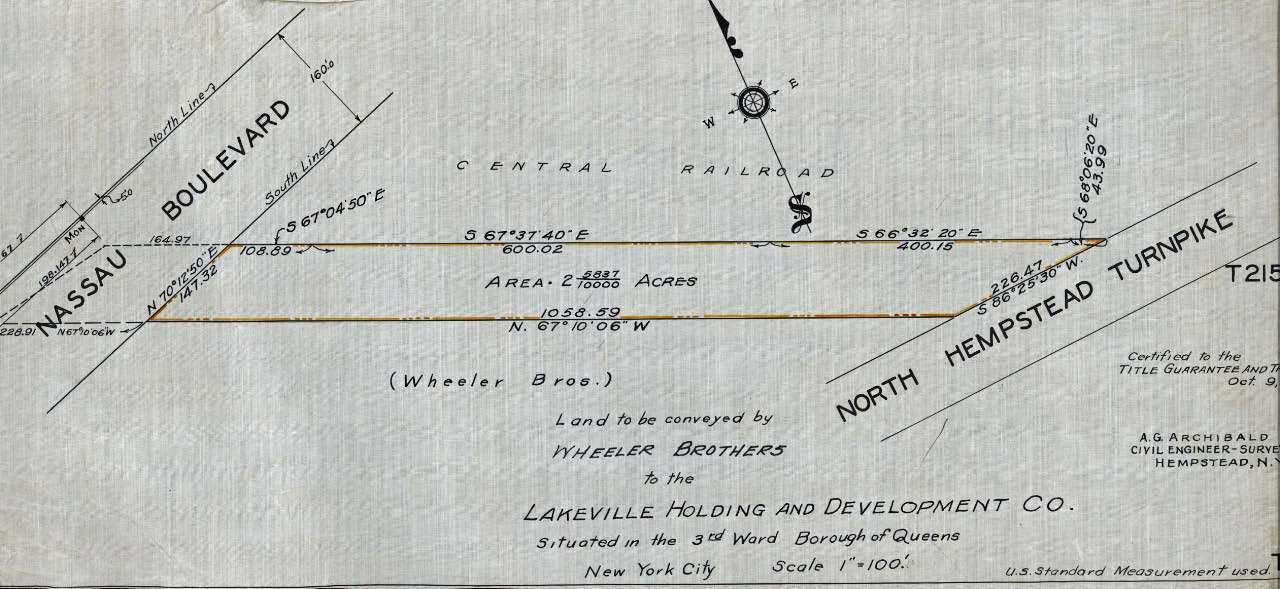 160.'0
North Line
BOULEVARD
South Line
5.0
67.7
MON
198.147.7
NASSAU
164.97
228.91
N67°10'06"W
N 70°12'50"E
147.32
S 67°04'50"E
108.89
E
W
S
CENTRAL RAILROAD
S 67°37'40"E
600.02
S 66°32'20"E
400.15
S 68°06'20"E
43.99
AREA. 2 5837/10000 ACRES
1058.59
N. 67°10'06" W
226.47
S 86°25'30" W.
NORTH HEMPSTEAD TURNPIKE
T215
(Wheeler Bros.)
Land to be conveyed by
WHEELER BROTHERS
to the
LAKEVILLE HOLDING AND DEVELOPMENT CO.
Situated in the 3rd Ward Borough of Queens
New York City Scale 1"=100.'
Certified to the
TITLE GUARANTEE AND
Oct. 9,
A.G. ARCHIBALD
CIVIL ENGINEER-SURVE
HEMPSTEAD, N.Y
U.S. Standard Measurement used.